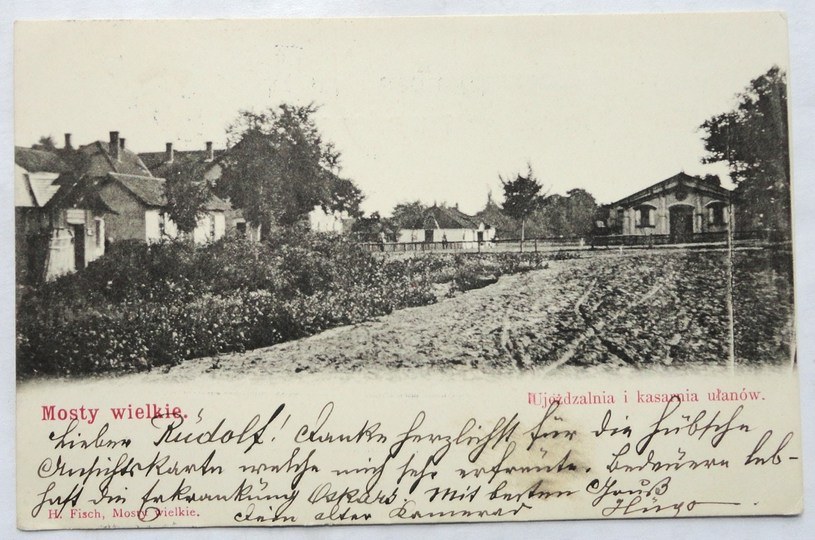 Mosty wielkie.
Ujeżdzalnia i kasarnia ułanów.
Lieber Rudolf! Danke herzlichst für die hübsche
Ansichtskarte welche mich sehr erfreute. Bedauere leb-
haft die Erkrankung Oskars. Mit besten Gruß
H. Fisch, Mosty wielkie.
Dein alter Kamerad Hugo